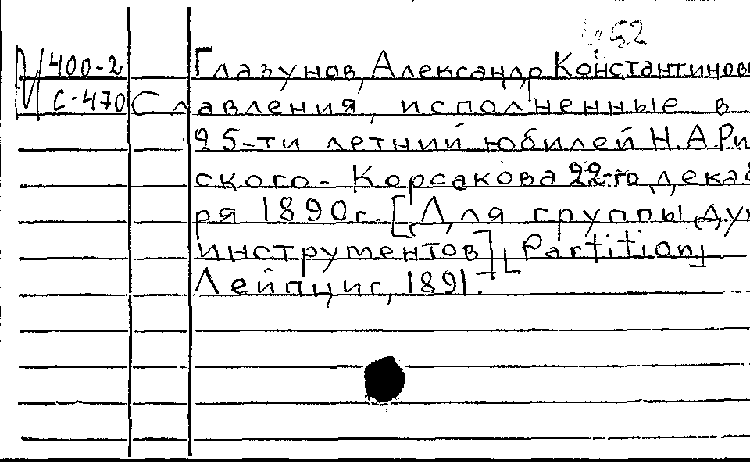 52
400-2 Глазунов, Александр Константинов
С-470 Славления, исполненные в
25-ти летний юбилей Н.А Ри
ского-Корсакова 22-го дека
ря 1890г. [Для группы дух
инструментов] [Partition]
Лейпциг, 1891.